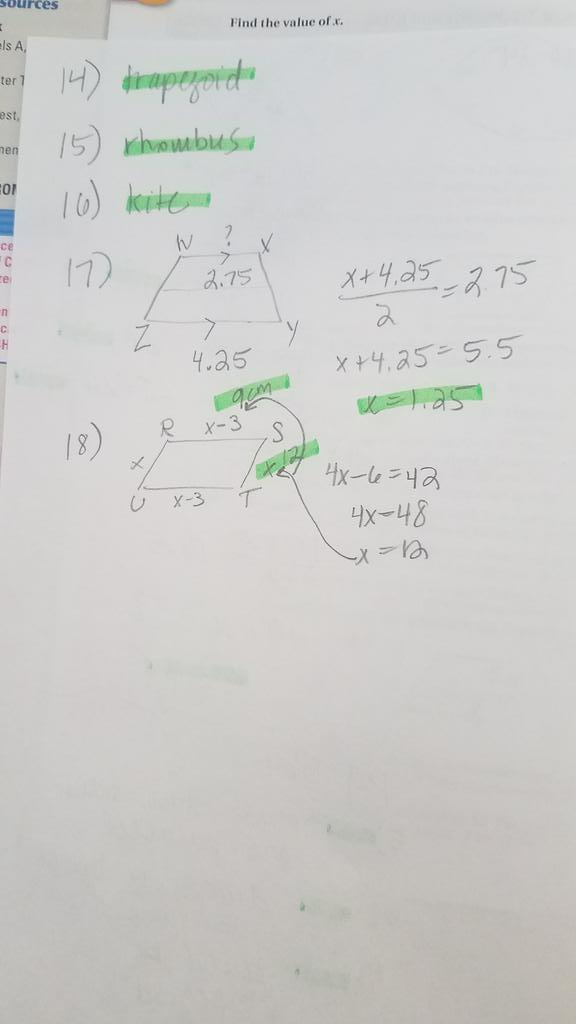 sources
Find the value of x.
els A,
ter
est,
14) trapezoid
15) rhombus
16) kite
17)
W ? X
2.75
Z Y
4.25
x+4.25
2
=2.75
x+4.25=5.5
x=1.25
18)
9cm
R x-3 S
x
x 12
U x-3 T
4x-6=42
4x=48
x=12